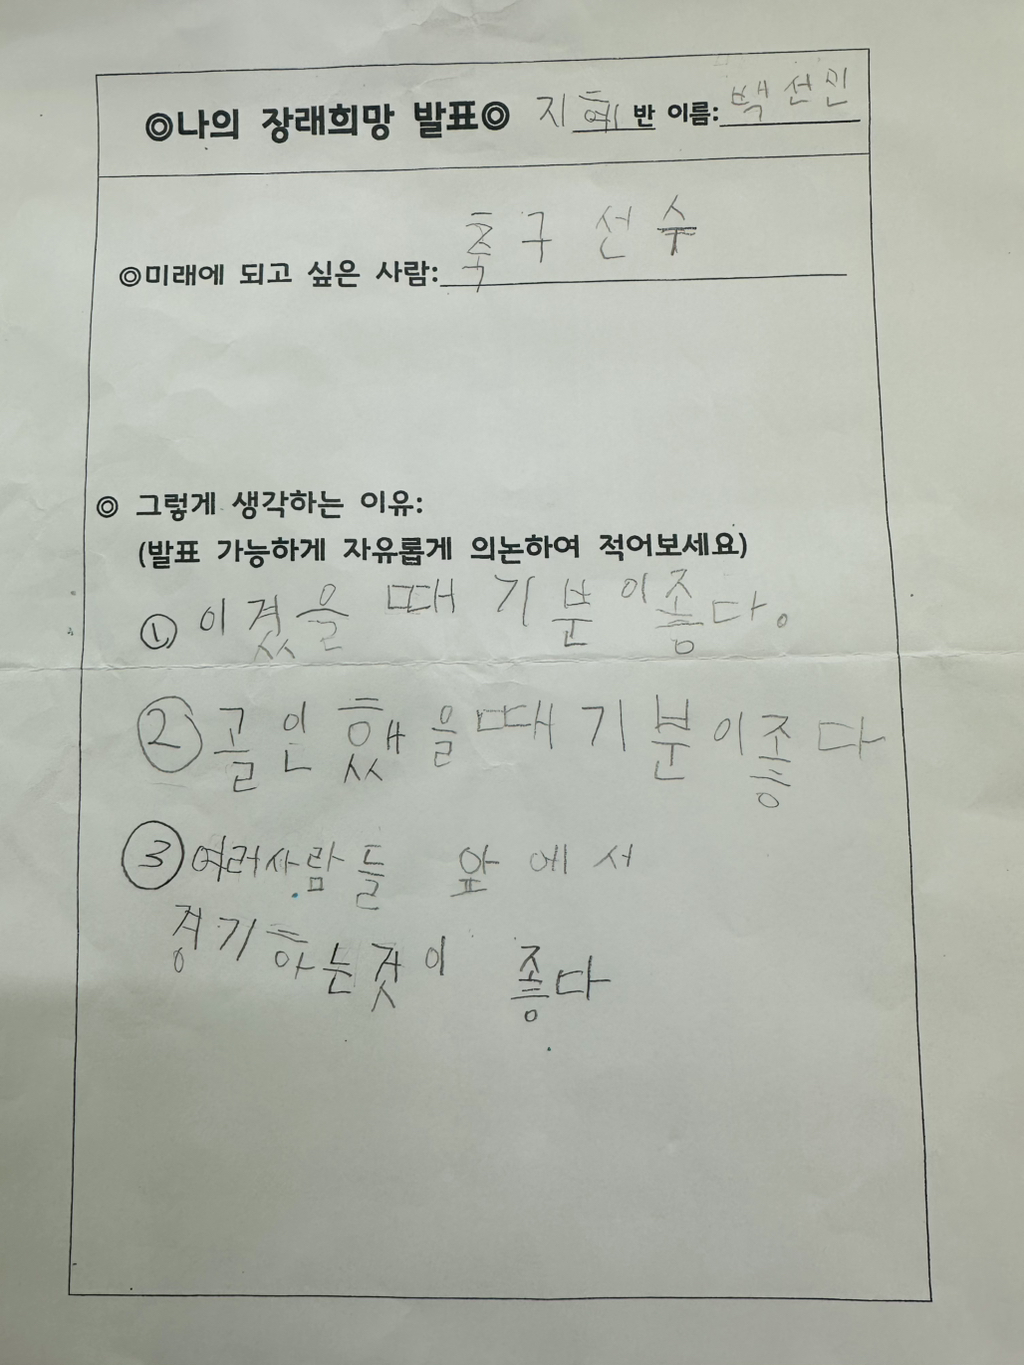 ◎나의 장래희망 발표◎ 지혜반 이름: 백선민
◎미래에 되고 싶은 사람: 축구 선수
◎ 그렇게 생각하는 이유:
(발표 가능하게 자유롭게 의논하여 적어보세요)
① 이겼을 때 기분이좋다.
② 골인했을때 기분이좋다
③ 여러사람들 앞에서
경기하는것이 좋다